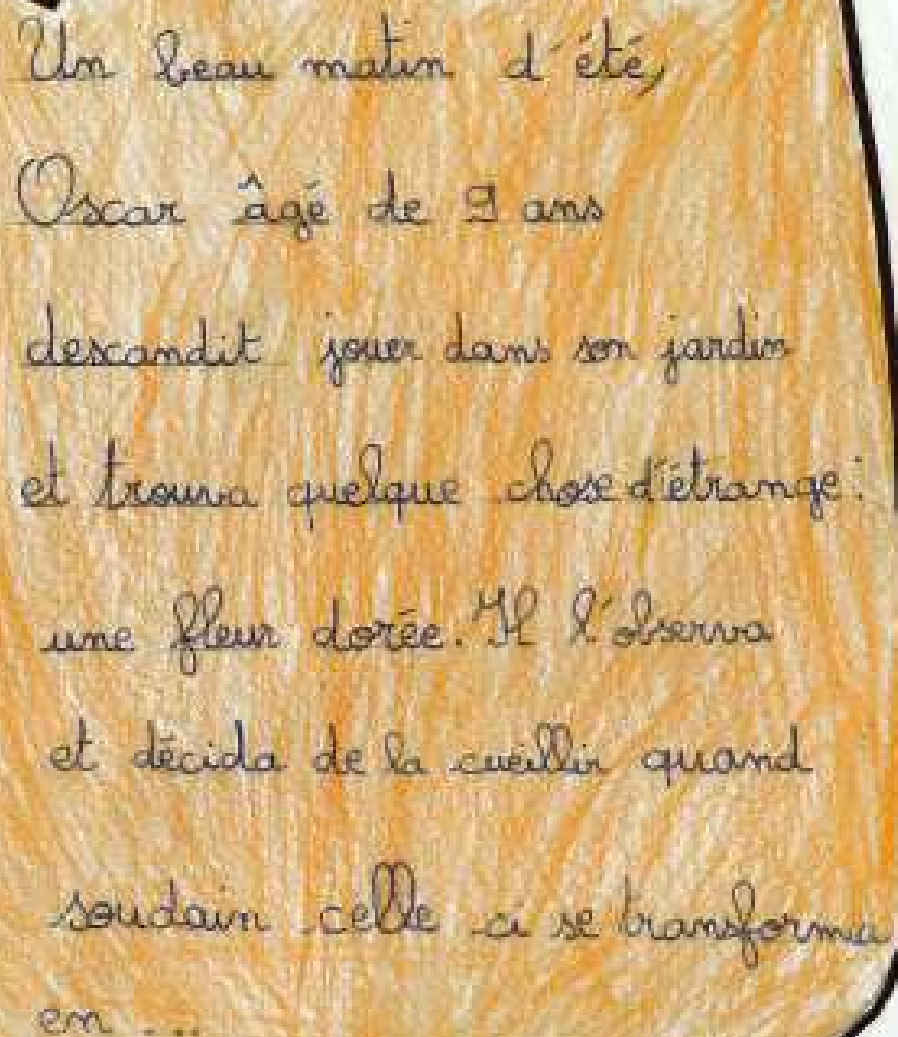 Un beau matin d'été,
Oscar âgé de 9 ans
descandit jouer dans son jardin
et trouva quelque chose d'étrange:
une fleur dorée. Il l'observa
et décida de la cueillir quand
soudain celle ci se transforma
en ...